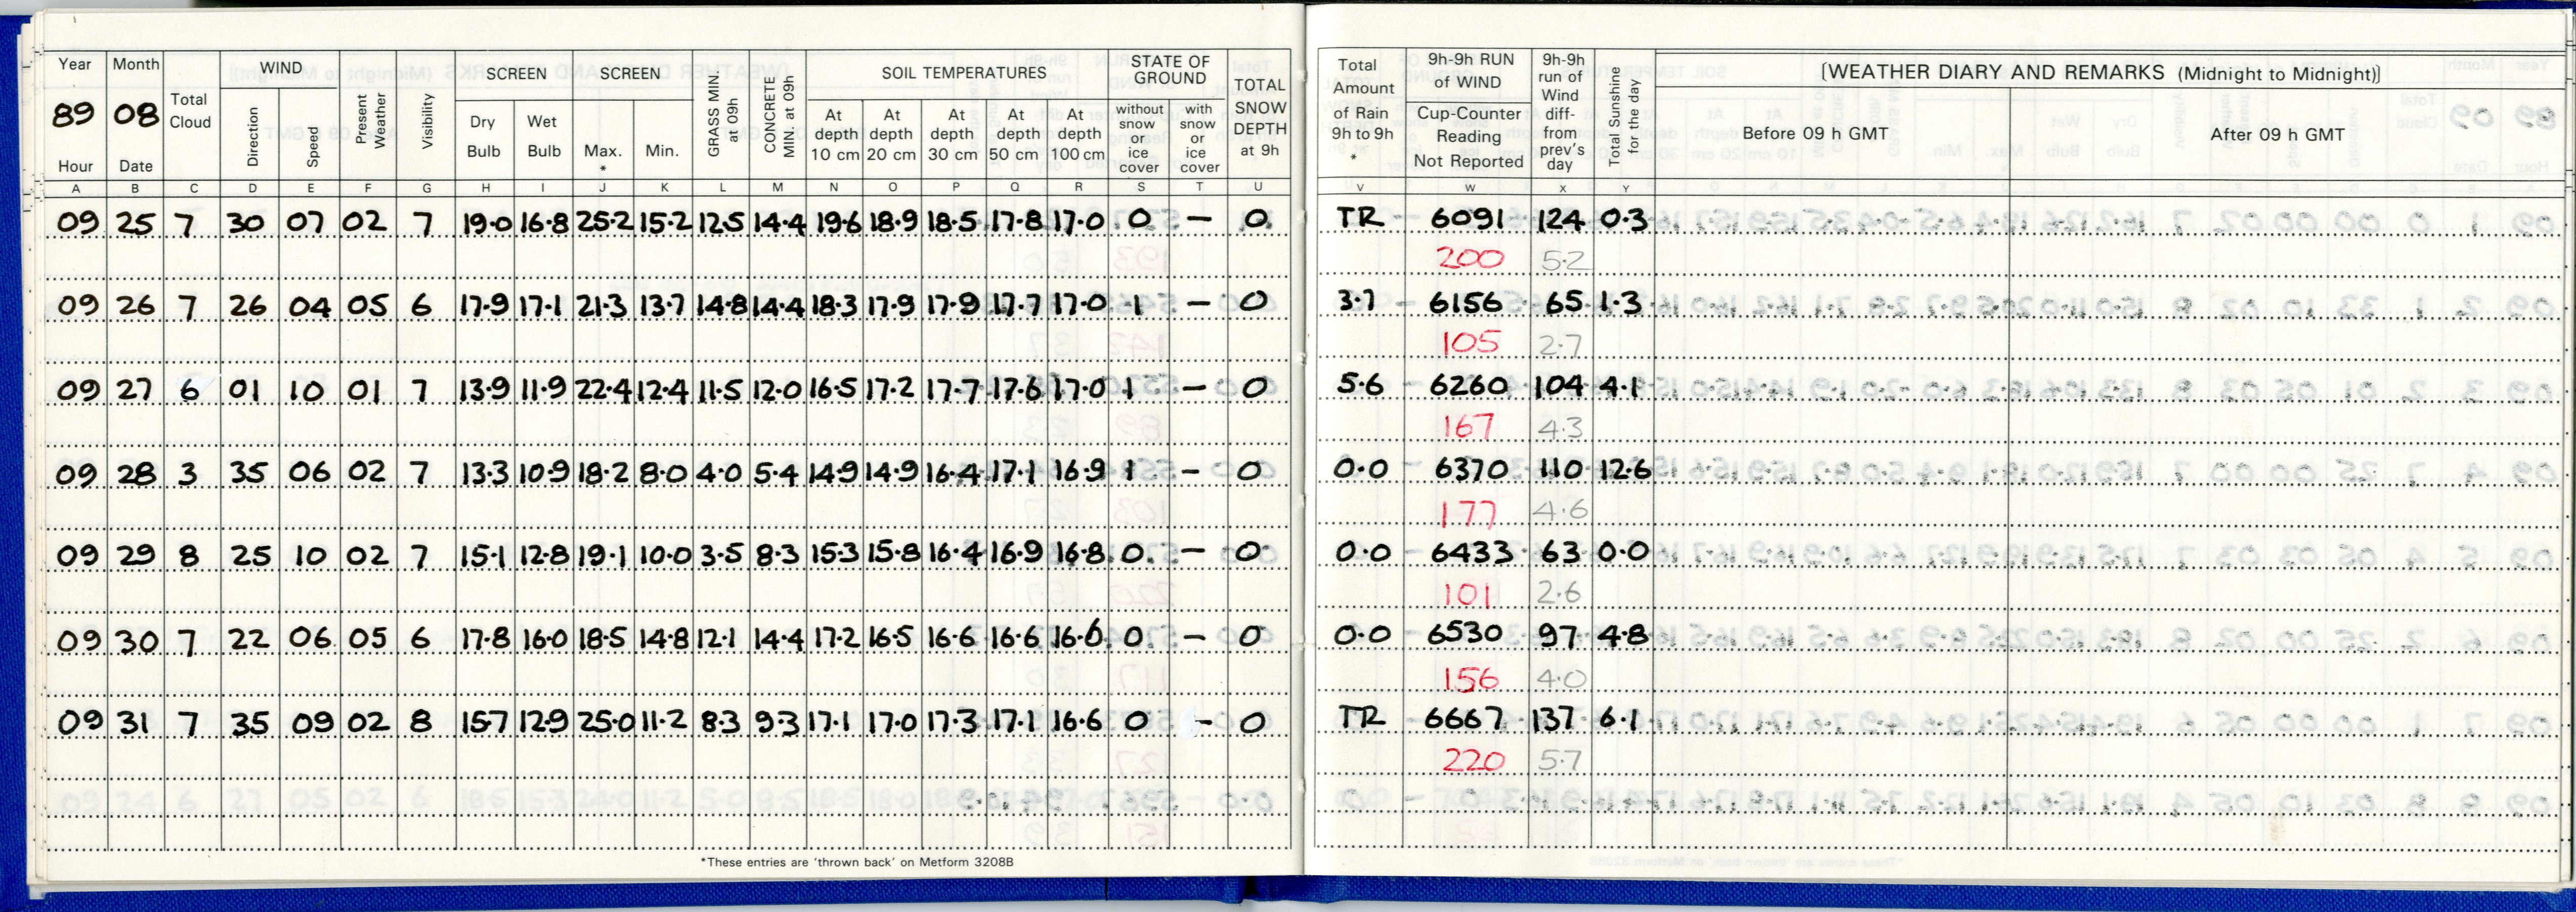 Year Month Total Cloud WIND SCREEN SCREEN GRASS MIN at 09h CONCRETE MIN. at 09h SOIL TEMPERATURES STATE OF GROUND TOTAL SNOW DEPTH at 9h Total Amount of Rain 9h to 9h * 9h-9h RUN of WIND 9h-9h run of Wind diff- from prev's day Total Sunshine for the day [WEATHER DIARY AND REMARKS (Midnight to Midnight)]
89 08 Direction Speed Present Weather Visibility Dry Bulb Wet Bulb Max. * Min. At depth 10 cm At depth 20 cm At depth 30 cm At depth 50 cm At depth 100 cm without snow or ice cover with snow or ice cover Cup-Counter Reading Not Reported Before 09 h GMT After 09 h GMT
Hour Date
A B C D E F G H I J K L M N O P Q R S T U V W X Y
09 25 7 30 07 02 7 19.0 16.8 25.2 15.2 12.5 14.4 19.6 18.9 18.5 17.8 17.0 0 — 0 TR 6091 124 0.3
200 5.2
09 26 7 26 04 05 6 17.9 17.1 21.3 13.7 14.8 14.4 18.3 17.9 17.9 17.7 17.0 1 — 0 3.7 6156 65 1.3
105 2.7
09 27 6 01 10 01 7 13.9 11.9 22.4 12.4 11.5 12.0 16.5 17.2 17.7 17.6 17.0 1 — 0 5.6 6260 104 4.1
167 4.3
09 28 3 35 06 02 7 13.3 10.9 18.2 8.0 4.0 5.4 14.9 14.9 16.4 17.1 16.9 1 — 0 0.0 6370 110 12.6
177 4.6
09 29 8 25 10 02 7 15.1 12.8 19.1 10.0 3.5 8.3 15.3 15.8 16.4 16.9 16.8 0 — 0 0.0 6433 63 0.0
101 2.6
09 30 7 22 06 05 6 17.8 16.0 18.5 14.8 12.1 14.4 17.2 16.5 16.6 16.6 16.6 0 — 0 0.0 6530 97 4.8
156 4.0
09 31 7 35 09 02 8 15.7 12.9 25.0 11.2 8.3 9.3 17.1 17.0 17.3 17.1 16.6 0 — 0 TR 6667 137 6.1
220 5.7
*These entries are 'thrown back' on Metform 3208B